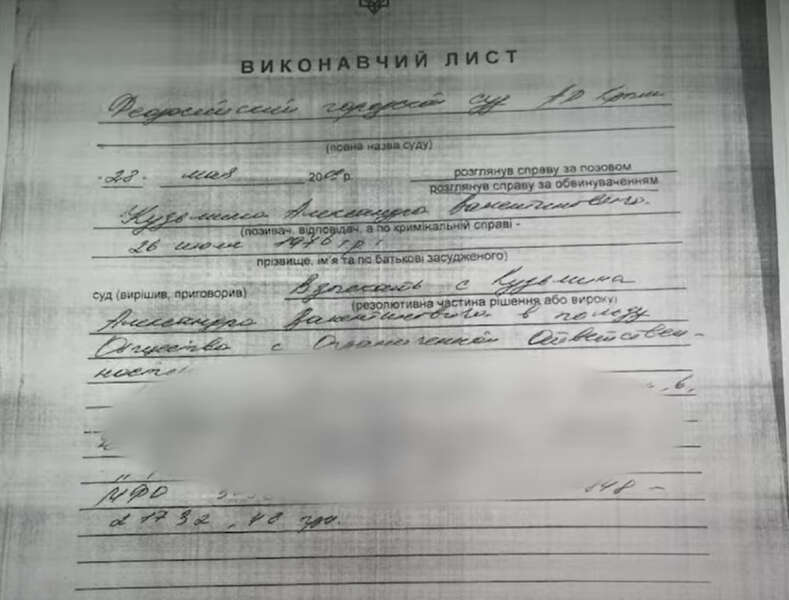 ВИКОНАВЧИЙ ЛИСТ
Феодосийский городской суд АР Крым
(повна назва суду)
28 мая 200 р.
розглянув справу за позовом
розглянув справу за обвинуваченням
Кузьмина Александра Валентиновича
(позивач, відповідач, а по кримінальній справі -
26 июля 1976 г.р.
прізвище, ім'я та по батькові засудженого)
суд (вирішив, приговорив) Взыскать с Кузьмина
(резолютивна частина рішення або вироку)
Александра Валентиновича в пользу
Общества с Ограниченной Ответствен-
ностью
МФО
2 1732, 48 грн.